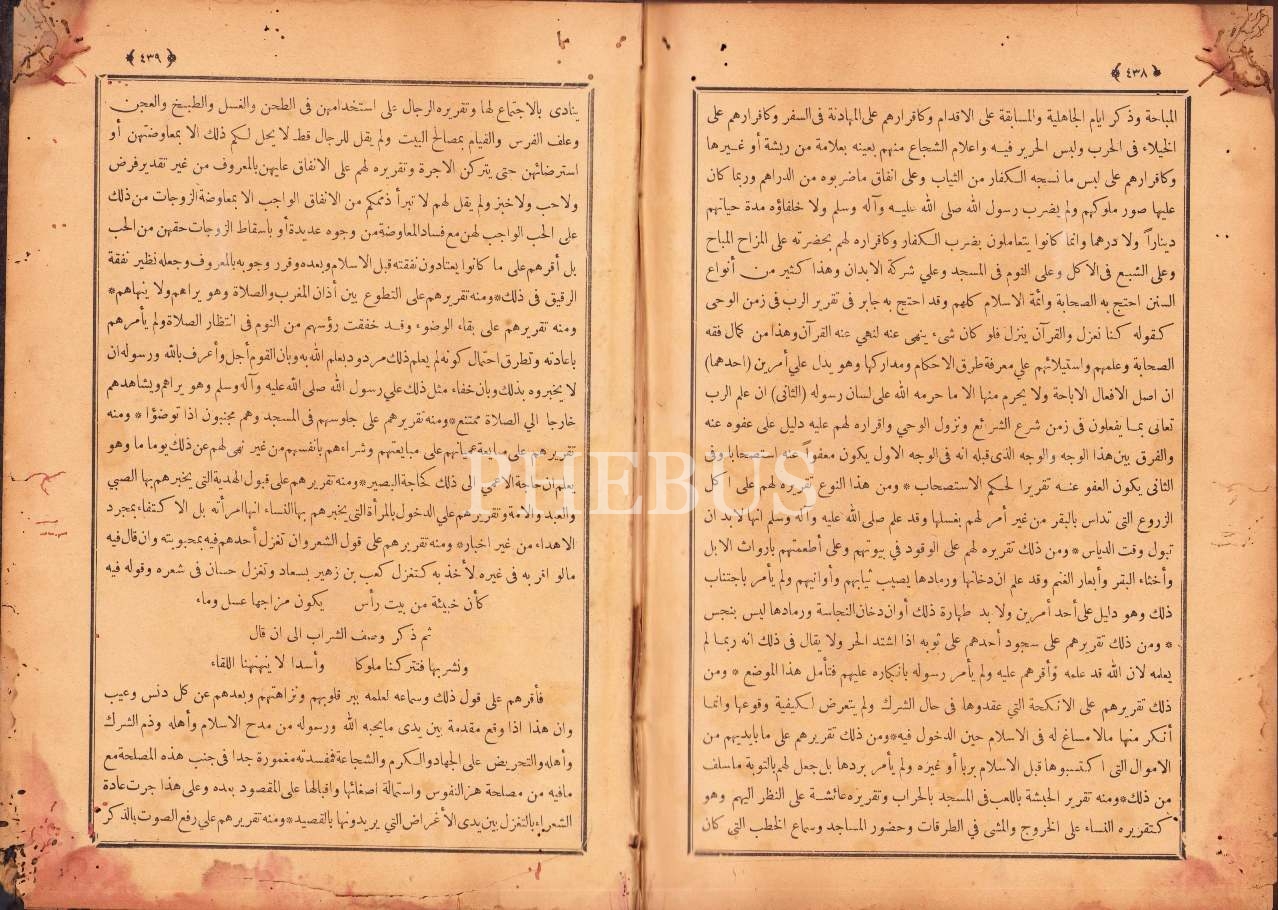 ﴿ ٤٣٨ ﴾
المباحة وذكر ايام الجاهلية والمسابقة على الاقدام وكاقرارهم على المهادنة فى السفر وكاقرارهم على
الخيلاء فى الحرب ولبس الحرير فيه واعلام الشجاع منهم بعينه بعلامة من ريشة أو غيرها
وكاقرارهم على لبس ما نسجه الكفار من الثياب وعلى انفاق ماضربوه من الدراهم وربما كان
عليها صور ملوكهم ولم يضرب رسول الله صلى الله عليه وآله وسلم ولا خلفاؤه مدة حياتهم
ديناراً ولا درهما وانما كانوا يتعاملون بضرب الكفار وكاقراره لهم بحضرته على المزاح المباح
وعلى الشبع فى الاكل وعلى النوم فى المسجد وعلي شركة الابدان وهذا كثير من أنواع
السنن احتج به الصحابة وائمة الاسلام كلهم وقد احتج به جابر فى تقرير الرب فى زمن الوحى
كقوله كنا نعزل والقرآن ينزل فلو كان شىء ينهى عنه لنهي عنه القرآن وهذا من كمال فقه
الصحابة وعلمهم واستيلائهم علي معرفة طرق الاحكام ومداركها وهو يدل علي أمرين (احدهما)
ان اصل الافعال الاباحة ولا يحرم منها الا ما حرمه الله على لسان رسوله (الثانى) ان علم الرب
تعالى بما يفعلون فى زمن شرع الشرائع ونزول الوحي واقراره لهم عليه دليل على عفوه عنه
والفرق بين هذا الوجه والوجه الذى قبله انه فى الوجه الاول يكون معفواً عنه استصحابا وفى
الثانى يكون العفو عنه تقريرا لحكم الاستصحاب * ومن هذا النوع تقريره لهم على اكل
الزروع التى تداس بالبقر من غير أمر لهم بغسلها وقد علم صلى الله عليه وآله وسلم انها لابد ان
تبول وقت الدياس * ومن ذلك تقريره لهم على الوقود في بيوتهم وعلى أطعمتهم بارواث الابل
وأخثاء البقر وأبعار الغنم وقد علم ان دخانها ورمادها يصيب ثيابهم وأوانيهم ولم يأمر باجتناب
ذلك وهو دليل على أحد أمرين ولا بد طهارة ذلك أو ان دخان النجاسة ورمادها ليس بنجس
* ومن ذلك تقريرهم على سجود أحدهم على ثوبه اذا اشتد الحر ولا يقال فى ذلك انه ربما لم
يعلمه لان الله قد علمه وأقرهم عليه ولم يأمر رسوله بانكاره عليهم فتأمل هذا الموضع * ومن
ذلك تقريرهم على الانكحة التي عقدوها فى حال الشرك ولم يتعرض لكيفية وقوعها وانما
أنكر منها مالا مساغ له فى الاسلام حين الدخول فيه * ومن ذلك تقريرهم على ما بايديهم من
الاموال التى اكتسبوها قبل الاسلام بربا أو غيره ولم يأمر بردها بل جعل لهم بالتوبة ماسلف
من ذلك * ومنه تقرير الحبشة باللعب فى المسجد بالحراب وتقريره عائشة على النظر اليهم وهو
كتقريره النساء على الخروج والمشى في الطرقات وحضور المساجد وسماع الخطب التي كان
﴿ ٤٣٩ ﴾
ينادى بالاجتماع لها وتقريره الرجال على استخدامهن فى الطحن والغسل والطبخ والعجن
وعلف الفرس والقيام بمصالح البيت ولم يقل للرجال قط لا يحل لكم ذلك الا بمعاوضتهن أو
استرضائهن حتى يتركن الاجرة وتقريره لهم على الانفاق عليهن بالمعروف من غير تقدير فرض
ولا حب ولا خبز ولم يقل لهم لا تبرأ ذممكم من الانفاق الواجب الا بمعاوضة الزوجات من ذلك
على الحب الواجب لهن مع فساد المعاوضة من وجوه عديدة أو باسقاط الزوجات حقهن من الحب
بل أقرهم على ما كانوا يعتادون نفقته قبل الاسلام وبعده وقرر وجوبه بالمعروف وجعله نظير نفقة
الرقيق فى ذلك * ومنه تقريرهم على التطوع بين أذان المغرب والصلاة وهو يراهم ولا ينهاهم *
ومنه تقريرهم على بقاء الوضوء وقد خفقت رؤسهم من النوم فى انتظار الصلاة ولم يأمرهم
باعادته وتطرق احتمال كونه لم يعلم ذلك مردود بعلم الله به وبان القوم أجل وأعرف بالله ورسوله ان
لا يخبروه بذلك وبان خفاء مثل ذلك علي رسول الله صلى الله عليه وآله وسلم وهو يراهم ويشاهدهم
خارجا الي الصلاة ممتنع * ومنه تقريرهم على جلوسهم فى المسجد وهم مجنبون اذا توضؤا * ومنه
تقريرهم على مبايعة عميانهم على مبايعتهم وشراءهم بأنفسهم من غير نهى لهم عن ذلك يوما ما وهو
يعلم ان حاجة الاعمي الى ذلك كحاجة البصير * ومنه تقريرهم على قبول الهدية التى يخبرهم بها الصبي
والعبد والامة وتقريرهم علي الدخول بالمرأة التى يخبرهم بها النساء انها امرأته بل الاكتفاء بمجرد
الاهداء من غير اخبار * ومنه تقريرهم على قول الشعر وان تغزل أحدهم فيه بمحبوبته وان قال فيه
مالو اقر به فى غيره لأخذ به كتغزل كعب بن زهير بسعاد وتغزل حسان فى شعره وقوله فيه
كأن خبيئة من بيت رأس يكون مزاجها عسل وماء
ثم ذكر وصف الشراب الى ان قال
ونشربها فتتركنا ملوكا وأسدا لا ينهنهنا اللقاء
فأقرهم على قول ذلك وسماعه لعلمه ببر قلوبهم ونزاهتهم وبعدهم عن كل دنس وعيب
وان هذا اذا وقع مقدمة بين يدى مايحبه الله ورسوله من مدح الاسلام وأهله وذم الشرك
وأهله والتحريض على الجهاد والكرم والشجاعة فمفسدته مغمورة جدا فى جنب هذه المصلحة مع
مافيه من مصلحة هز النفوس واستمالة اصغائها واقبالها على المقصود بعده وعلى هذا جرت عادة
الشعراء بالتغزل بين يدى الأغراض التي يريدونها بالقصيد * ومنه تقريرهم على رفع الصوت بالذكر
PHEBUS